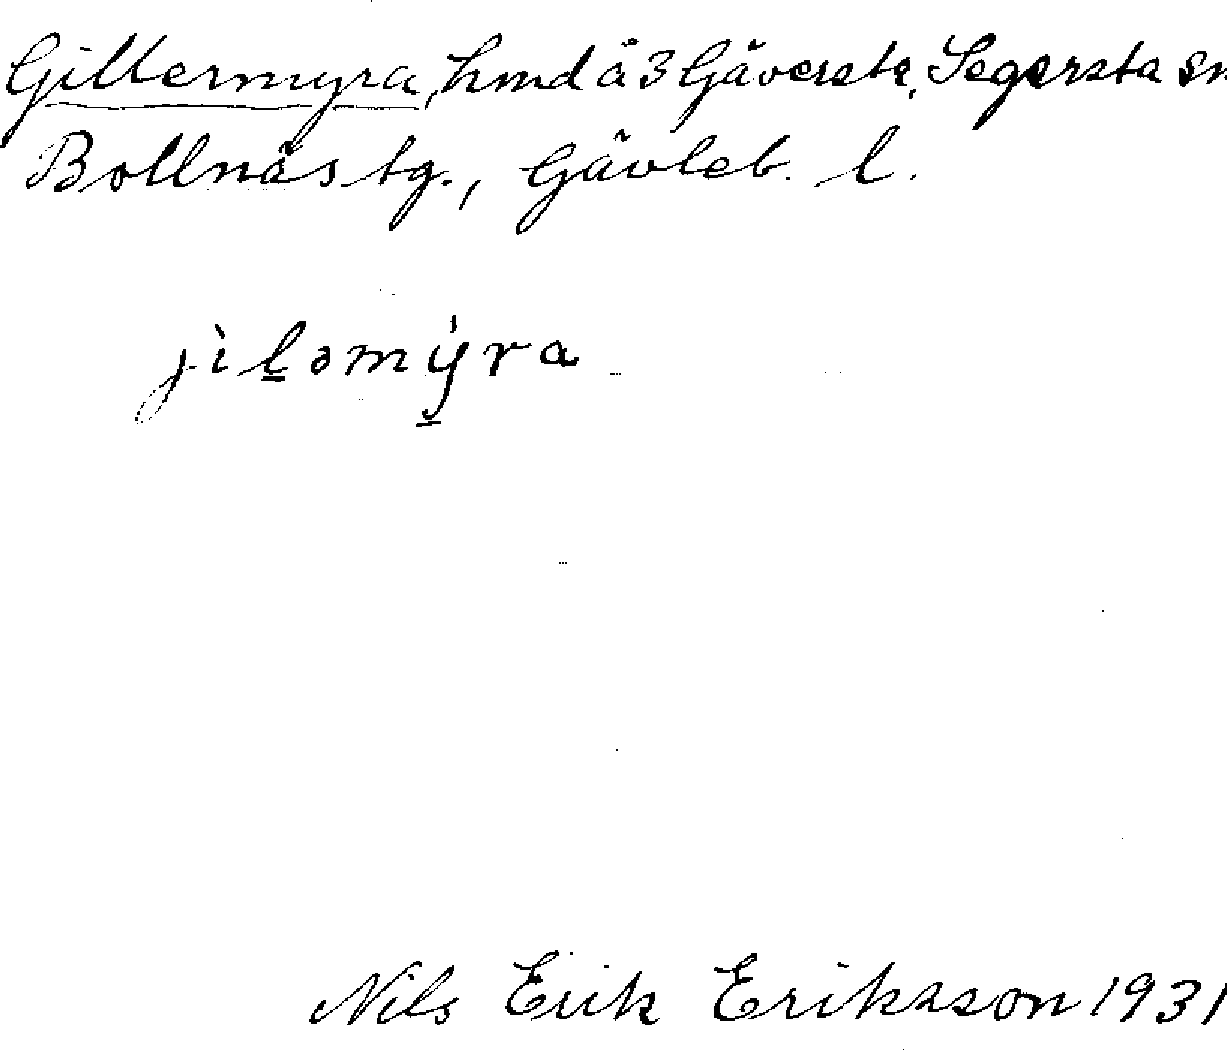 Gillermyra, hmd å 3 Gäversta, Segersta sn
Bollnäs tg., Gävleb. l.
jìl̲əmý̲ra
Nils Erik Eriksson 1931